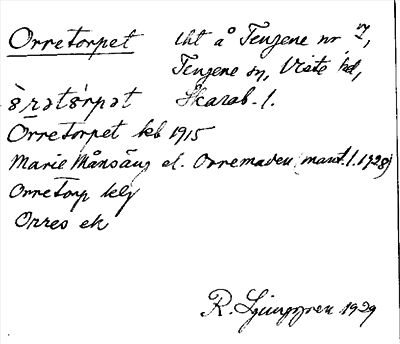 Orretorpet lht å Tengene nr 7,
Tengene sn, Viste hd,
ò̀rətɛ́rpət Skarab. l.
Orretorpet kb 1915
Marie Månsäng el. Orremaden (mant.l. 1728)
Orretorp
Orres ek
R. Ljunggren 1929